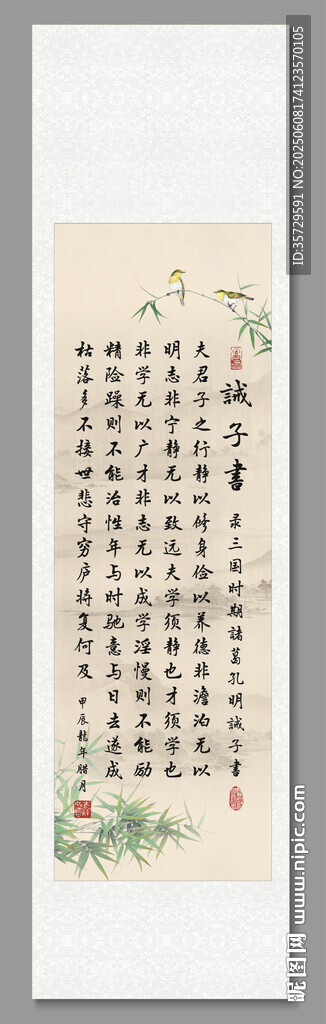 誡子書 录三国时期諸葛孔明誡子書
夫君子之行静以修身俭以养德非澹泊无以
明志非宁静无以致远夫学须静也才须学也
非学无以广才非志无以成学淫慢则不能励
精险躁则不能治性年与时驰意与日去遂成
枯落多不接世悲守穷庐将复何及
甲辰龍年腊月
ID:35729591 NO:20250608174123570105
昵图网 www.nipic.com